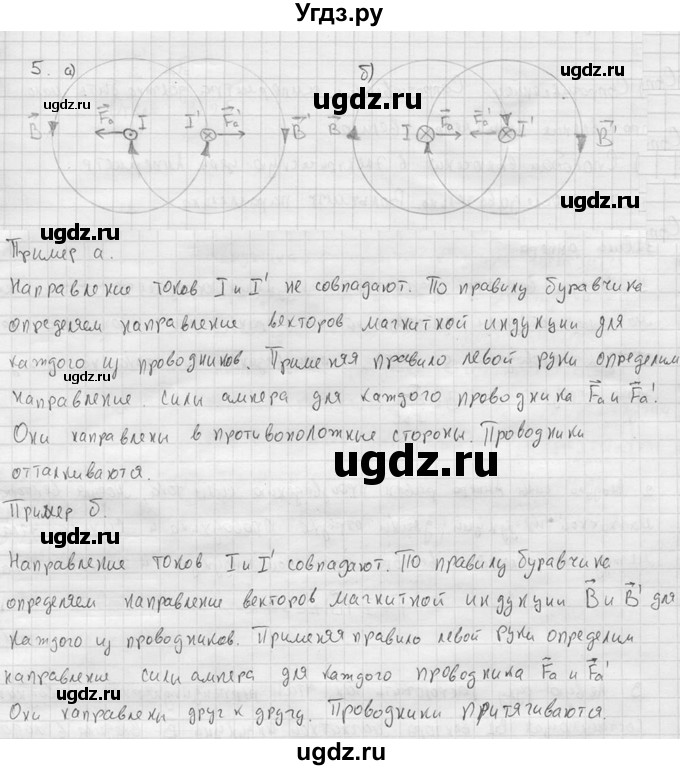 Угдз.ру
5. а) б)
ugdz.ru
ugdz.ru
ugdz.ru
B⃗ F⃗a I I' F⃗a B⃗' B⃗ I F⃗a F⃗a' I' B⃗'
ugdz.ru
Пример а.
Направление токов I и I' не совпадают. По правилу буравчика
определяем направление векторов магнитной индукции для
каждого из проводников. Применяя правило левой руки определим
ugdz.ru
направление сили ампера для каждого проводника F⃗a и F⃗a'.
Они направлени в противоположные стороны. Проводники
ugdz.ru
отталкиваются.
Пример б.
ugdz.ru
Направление токов I и I' совпадают. По правилу буравчика
определяем направление векторов магнитной индукции B⃗ и B⃗' для
каждого из проводников. Применяя правило левой руки определим
направление сили ампера для каждого проводника F⃗a и F⃗a'
ugdz.ru
Они направлени друг к другу. Проводники притягиваются.
ugdz.ru